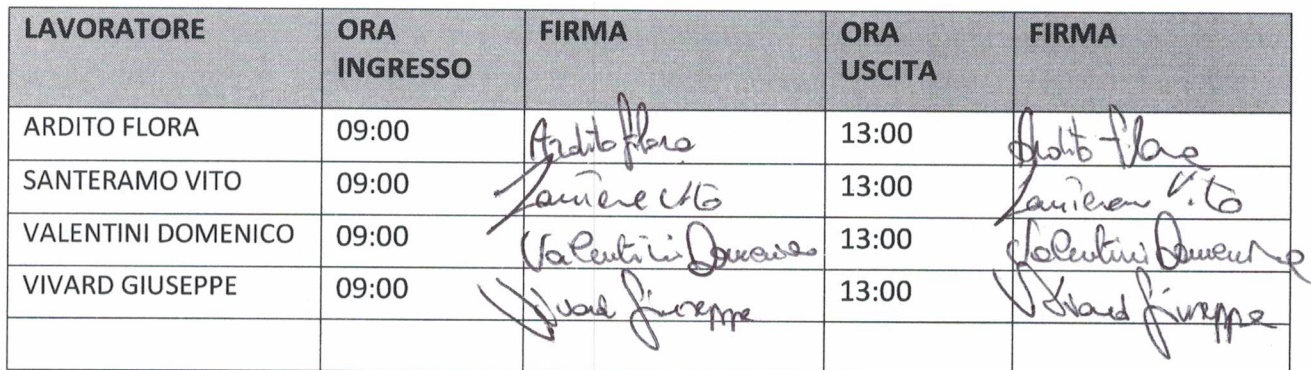 LAVORATORE ORA INGRESSO FIRMA ORA USCITA FIRMA
ARDITO FLORA 09:00 Ardito Flora 13:00 Ardito Flora
SANTERAMO VITO 09:00 Vito 13:00 Vito
VALENTINI DOMENICO 09:00 Valentini Domenico 13:00 Valentini Domenico
VIVARD GIUSEPPE 09:00 Vivard Giuseppe 13:00 Vivard Giuseppe